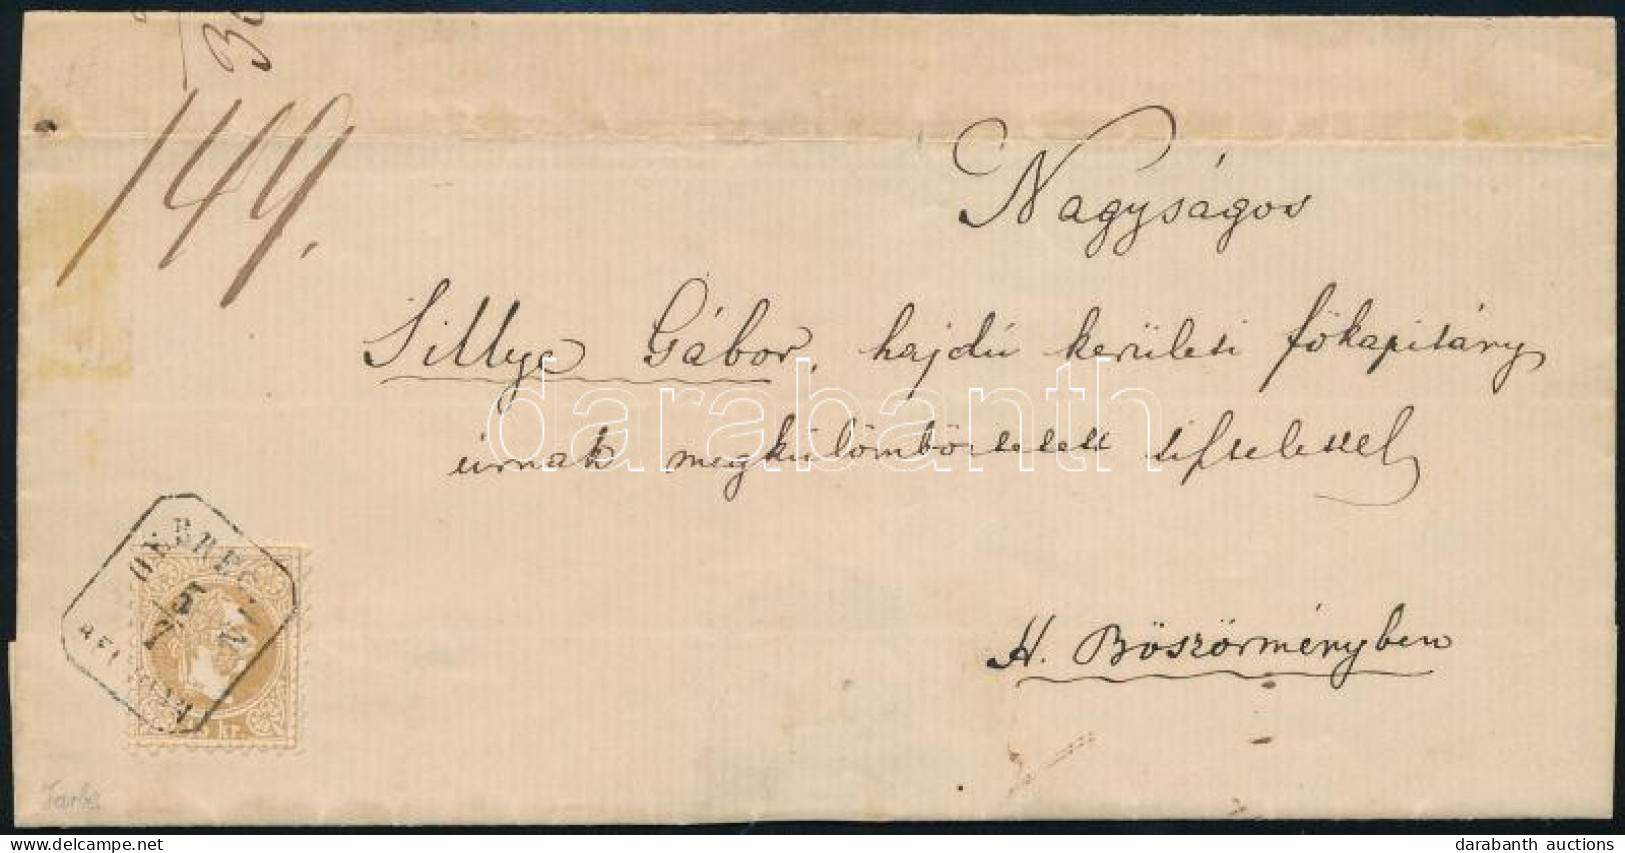 149.
Nagyságos
Sillye Gábor, hajdú kerületi főkapitány
úrnak megkülömböztetett tisztelettel
H. Böszörményben
DEBRECZIN
5
7
kr.
Farbe
darabanth
darabanth auctions